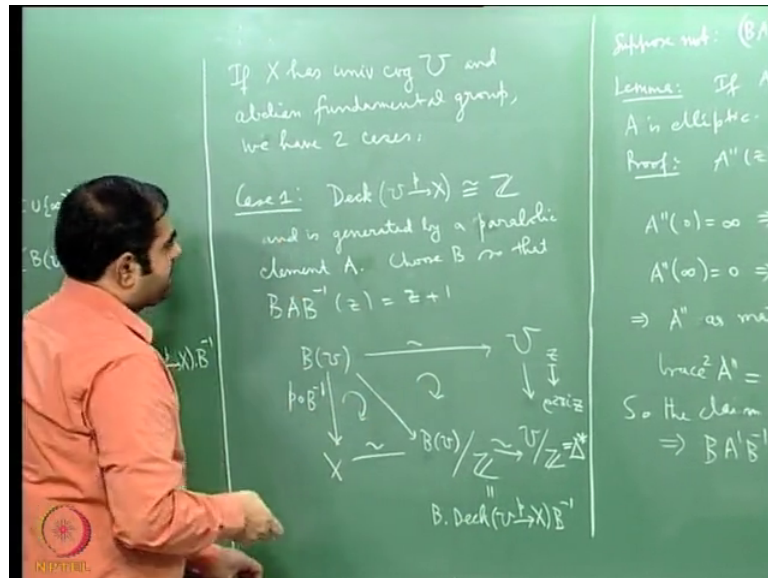 ∪{∞}
B(U)
→X).B⁻¹
If X has univ cog U and
abelian fundamental group,
we have 2 cases:
Case 1: Deck (U →ᵖ X) ≅ ℤ
and is generated by a parabolic
element A. Choose B so that
BAB⁻¹(z) = z + 1
B(U) ~→ U z
p∘B⁻¹ ↓ ↓
e^{2πiz}
X ~ B(U)/ℤ ~→ U/ℤ = Δ*
"
B. Deck (U →ᵖ X) B⁻¹
Suppose not: (BA
Lemma: If A
A is elliptic.
Proof: A"(z
A"(0) = ∞ ⇒
A"(∞) = 0 ⇒
⇒ A" as ma
trace² A" =
So the claim
⇒ BA'B⁻¹
NPTEL